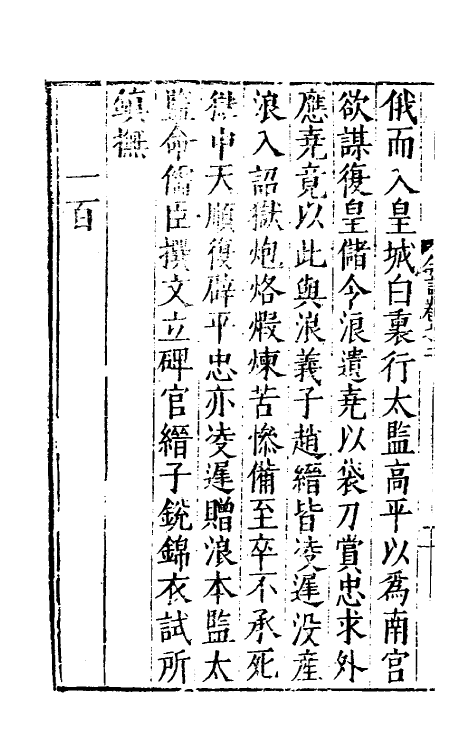 俄而入皇城白裏行太監高平以為南宮
欲謀復皇儲今浪遺堯以袋刀賞忠求外
應堯竟以此與浪義子趙縉皆凌遲没産
浪入詔獄炮烙煅煉苦慘備至卒不承死
獄中天順復辟平忠亦凌遲贈浪本監太
監命儒臣撰文立碑官縉子銳錦衣試所
鎮撫
一百